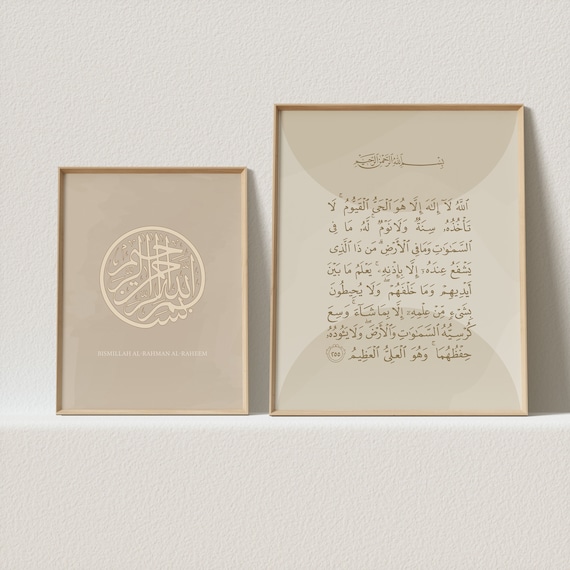 بسم الله الرحمن الرحيم
BISMILLAH AL-RAHMAN AL-RAHEEM
بِسْمِ ٱللَّهِ ٱلرَّحْمَٰنِ ٱلرَّحِيمِ
ٱللَّهُ لَآ إِلَٰهَ إِلَّا هُوَ ٱلْحَىُّ ٱلْقَيُّومُ ۚ لَا
تَأْخُذُهُۥ سِنَةٌ وَلَا نَوْمٌ ۚ لَّهُۥ مَا فِى
ٱلسَّمَٰوَٰتِ وَمَا فِى ٱلْأَرْضِ ۗ مَن ذَا ٱلَّذِى
يَشْفَعُ عِندَهُۥٓ إِلَّا بِإِذْنِهِۦ ۚ يَعْلَمُ مَا بَيْنَ
أَيْدِيهِمْ وَمَا خَلْفَهُمْ ۖ وَلَا يُحِيطُونَ
بِشَىْءٍ مِّنْ عِلْمِهِۦٓ إِلَّا بِمَا شَآءَ ۚ وَسِعَ
كُرْسِيُّهُ ٱلسَّمَٰوَٰتِ وَٱلْأَرْضَ ۖ وَلَا يَـُٔودُهُۥ
حِفْظُهُمَا ۚ وَهُوَ ٱلْعَلِىُّ ٱلْعَظِيمُ ٢٥٥